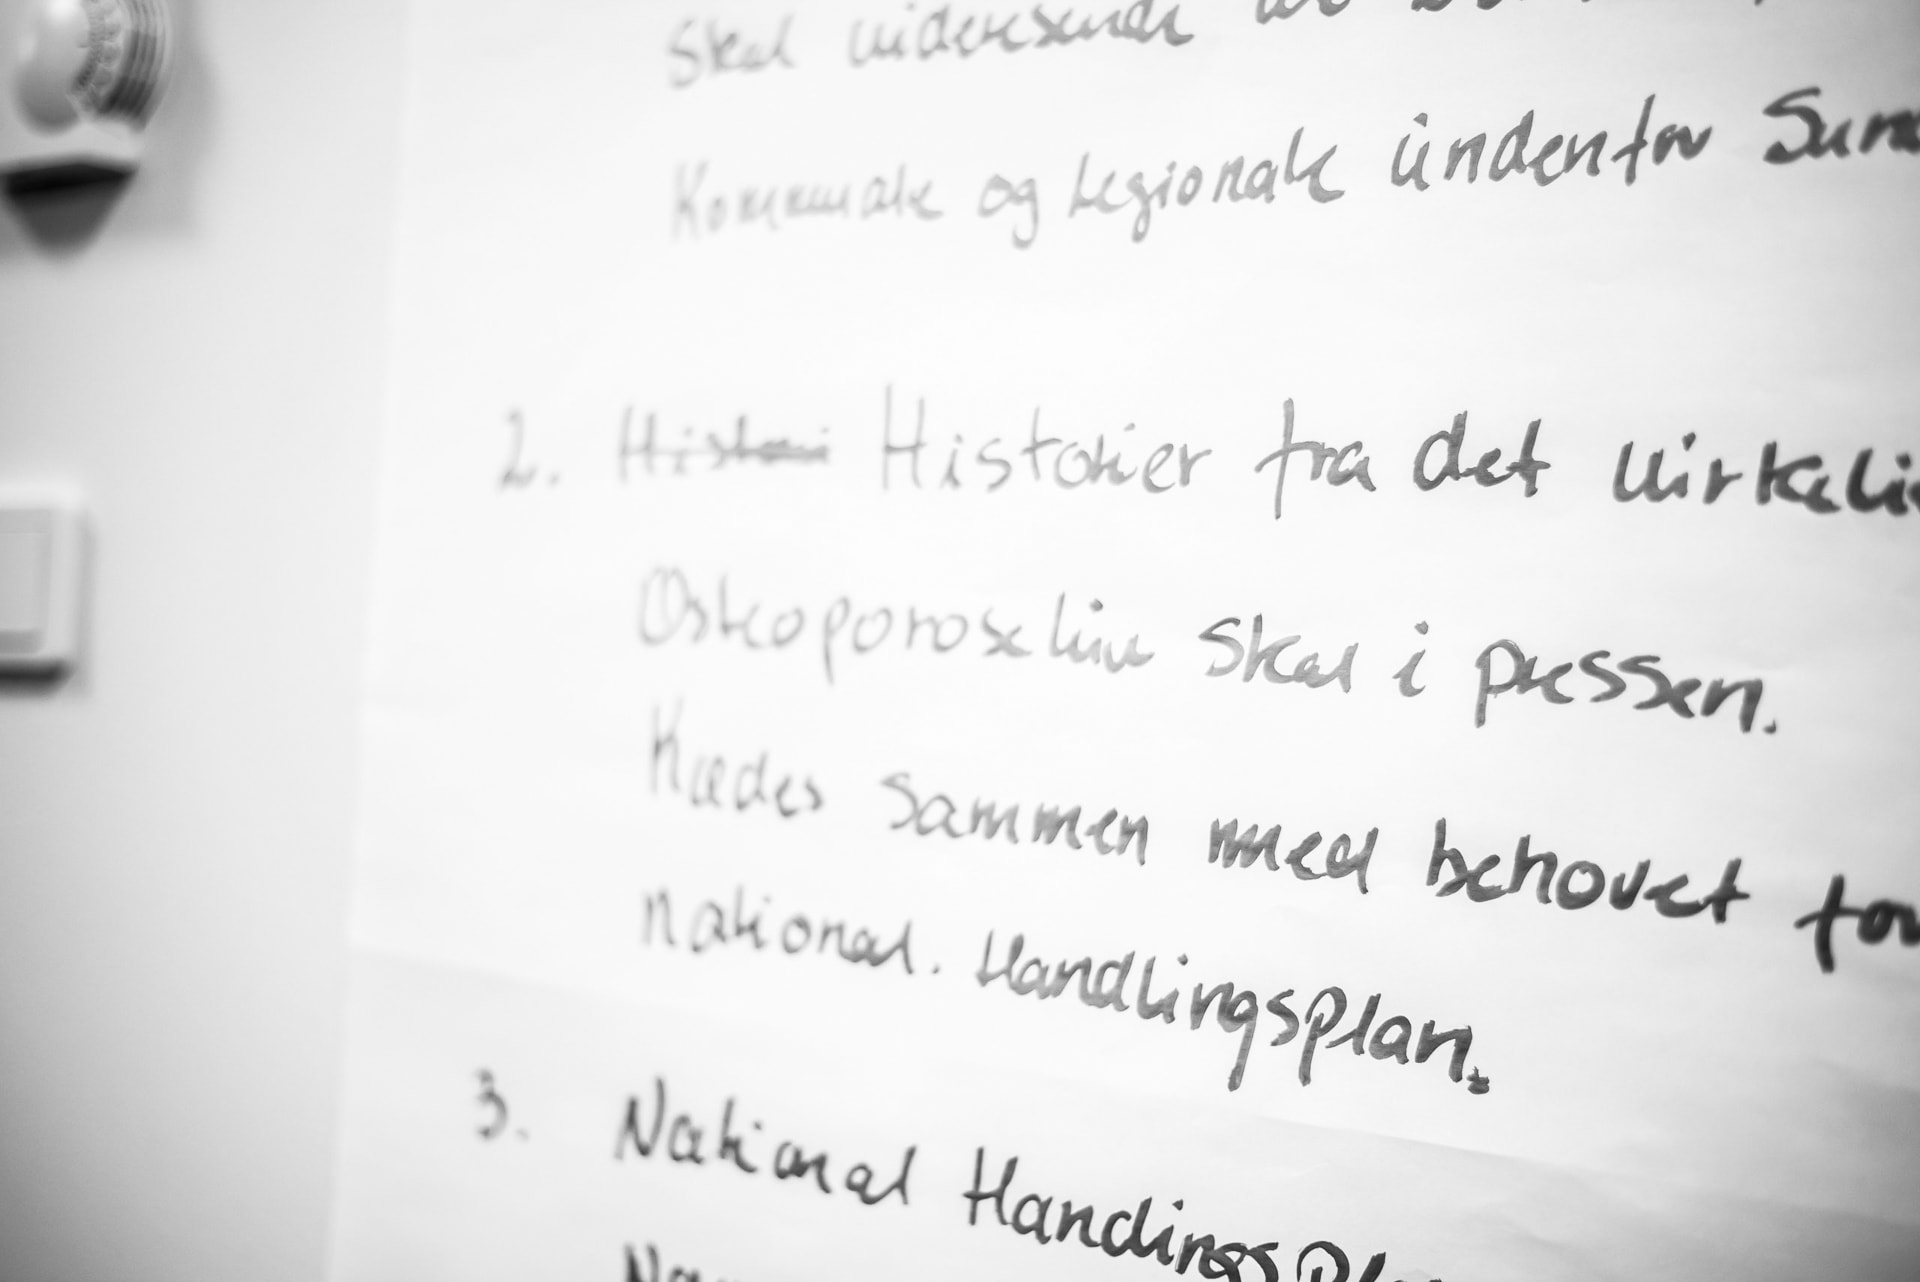 Skal videresende
Kommunale og Regionale indenfor
2. Histori Historier fra det
Osteoporose liv skal i pressen.
Kædes sammen med behovet for
national. Handlingsplan.
3. National Handings